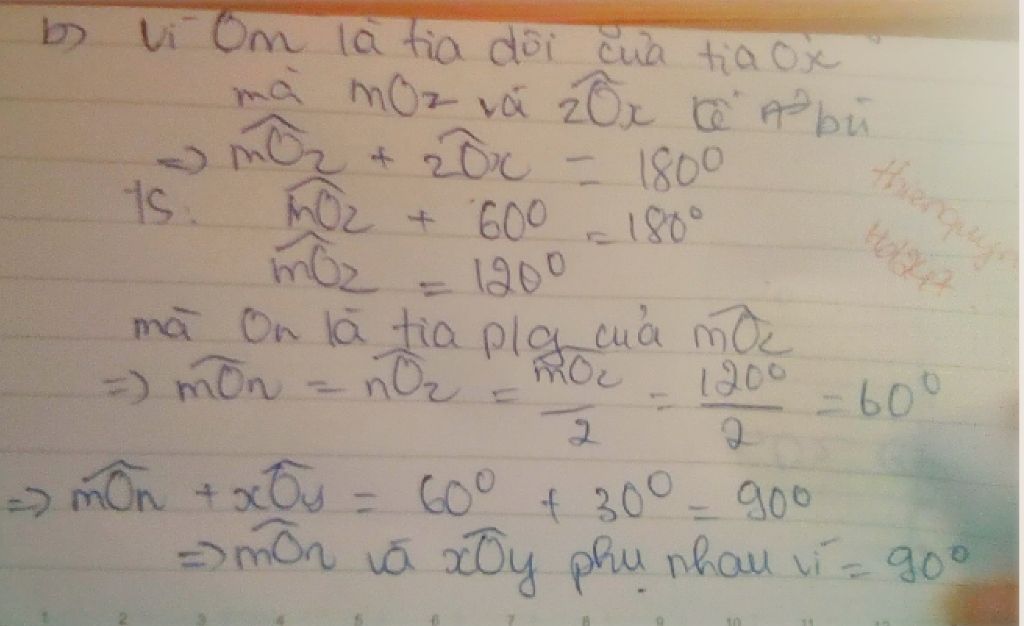 b) Vì Om là tia đối của tia Ox
mà mOz và zÔx kề bù
=> mÔz + zÔx = 180⁰
TS: mÔz + 60⁰ = 180⁰
mÔz = 120⁰
mà On là tia p/g của mÔz
=> mÔn = nÔz = mÔz/2 = 120⁰/2 = 60⁰
=> mÔn + xÔy = 60⁰ + 30⁰ = 90⁰
=> mÔn và xÔy phụ nhau vì = 90⁰